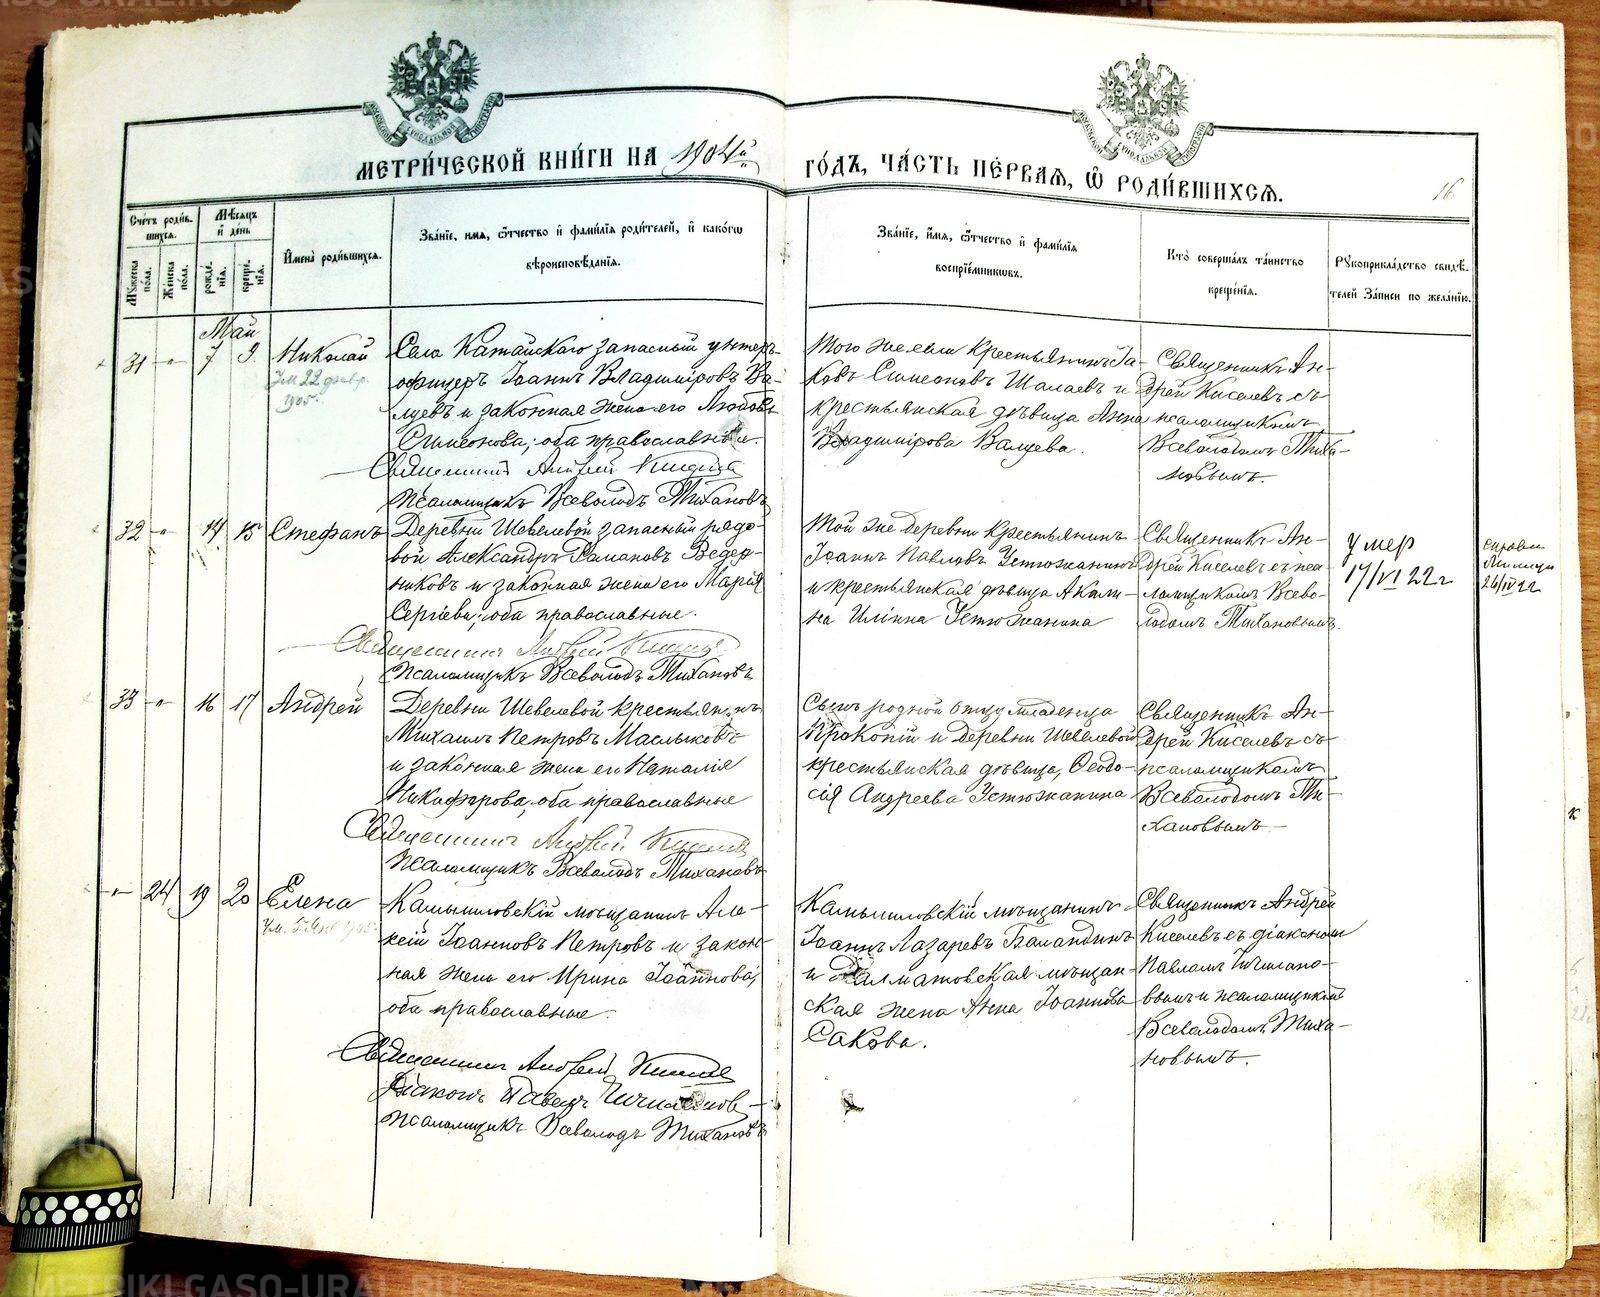 METRIKI.GASO-URAL.RU
МЕТРИ́ЧЕСКОЙ КНИ́ГИ НА 1904й
ГО́ДЪ, ЧА́СТЬ ПЕ́РВАЯ, Ѡ РОДИ́ВШИХСЯ.
16.
Сче́тъ роди́в-
шихся.
Мꙋжеска по́ла.
Же́нска по́ла.
Мѣ́сяцъ
и день
рожде́-
нія.
креще́-
нія.
Имена̀ роди́вшихся.
Зва́ніе, имя, ѻ҆́тчество и фами́лія роди́телей, и како́гѡ
вѣроисповѣ́данія.
Зва́ніе, имя, ѻ҆́тчество и фами́лія
воспріе́мниковъ.
Кто̀ соверша́лъ та́инство
креще́нія.
Рꙋкоприкла́дство свидѣ́-
телей За́писи по жела́нію.
Май
31 -"- 7 9 Николай
Ум 22 февр.
1905.
Села Катайскаго запасный унтеръ-
офицеръ Іоаннъ Владиміровъ Ва-
лцевъ и законная жена его Любовь
Симеонова; оба православные.
Священникъ Андрей Киселевъ
Псаломщикъ Всеволодъ Тихановъ
Того же села крестьянинъ Іа-
ковъ Симеоновъ Шалаевъ и
крестьянская дѣвица Анна
Владимірова Валцева.
Священникъ Ан-
дрей Киселевъ съ
псаломщикомъ
Всеволодомъ Тиха-
новымъ.
32 -"- 14 15 Стефанъ
Деревни Шевелевой запасный рядо-
вой Александръ Романовъ Ведер-
никовъ и законная жена его Марія
Сергіева; оба православные.
Священникъ Андрей Киселевъ
Псаломщикъ Всеволодъ Тихановъ
Той же деревни крестьянинъ
Іоаннъ Павловъ Устюжанинъ
и крестьянская дѣвица Акили-
на Иліина Устюжанина
Священникъ Ан-
дрей Киселевъ съ пса-
ломщикомъ Всево-
лодомъ Тихановымъ.
умер
17/VI 22 г
26/IV 22
33 -"- 16 17 Андрей
Деревни Шевелевой крестьянинъ
Михаилъ Петровъ Маслыковъ
и законная жена его Наталія
Никифорова, оба православные
Священникъ Андрей Киселевъ
Псаломщикъ Всеволодъ Тихановъ
Сынъ родной отцу младенца
Прокопій и деревни Шевелевой
крестьянская дѣвица, Ѳеодо-
сія Андреева Устюжанина
Священникъ Ан-
дрей Киселевъ съ
псаломщикомъ
Всеволодомъ Ти-
хановымъ
-"- 24 19 20 Елена
Ум. 5 янв 1905
Камышловскій мѣщанинъ Але-
ксій Іоанновъ Петровъ и закон-
ная жена его Ирина Іоаннова,
оба православные.
Священникъ Андрей Киселевъ
Діаконъ Павелъ
Псаломщикъ Всеволодъ Тихановъ
Камышловскій мѣщанинъ
Іоаннъ Лазаревъ Баландинъ
и Далматовская мѣщан-
ская жена Анна Іоаннова
Сакова.
Священникъ Андрей
Киселевъ съ діакономъ
Павломъ
вымъ и псаломщикомъ
Всеволодомъ Тиха-
новымъ.
METRIKI.GASO-URAL.RU